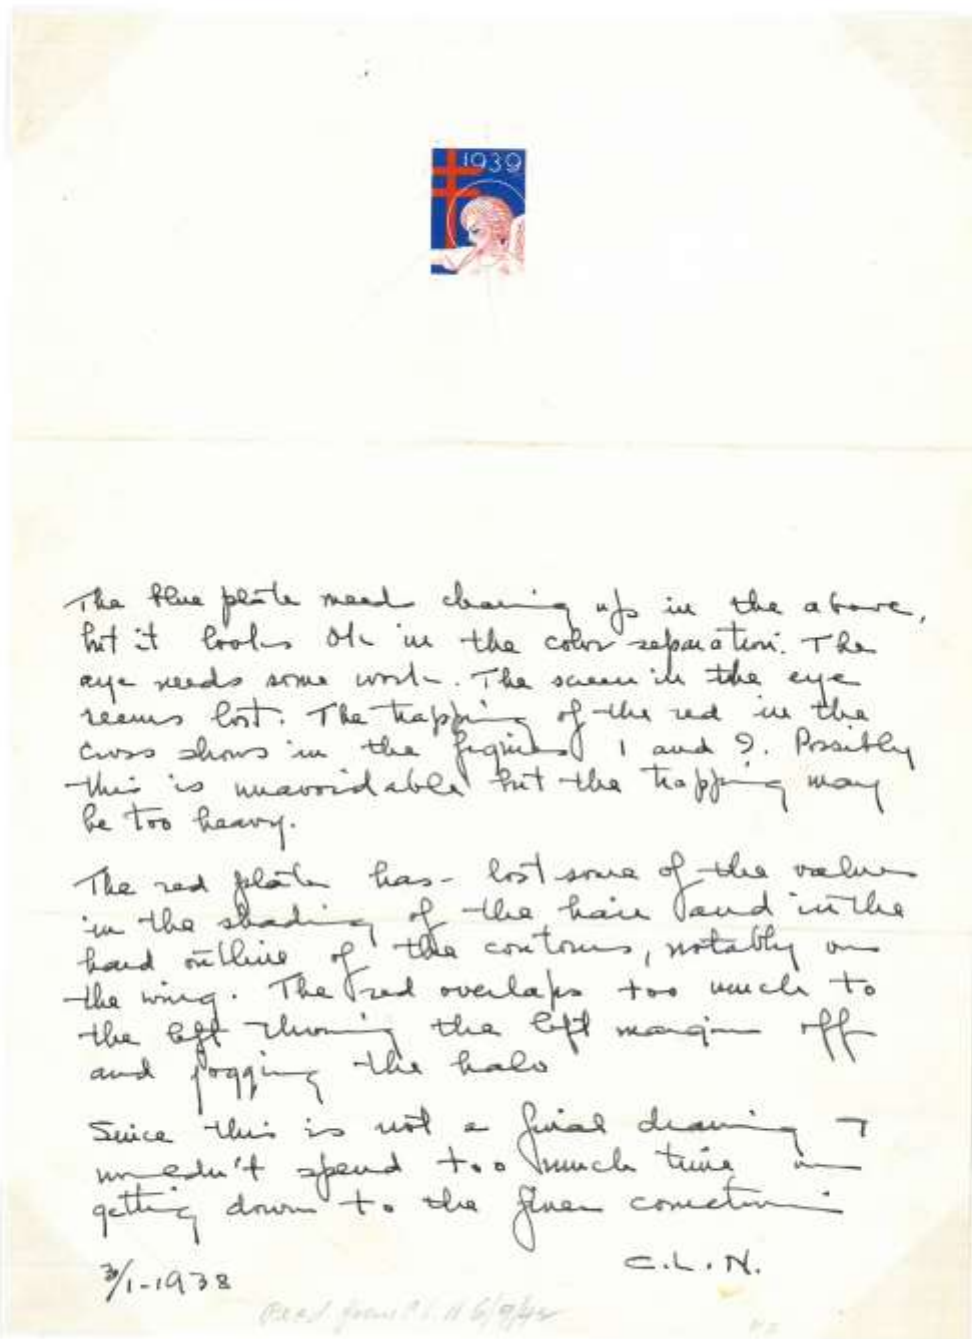 1939
The blue plate need cleaning up in the above,
but it looks OK in the color separation. The
eye needs some work. The screen in the eye
seems lost. The trapping of the red in the
cross shows in the figures 1 and 9. Possibly
this is unavoidable but the trapping may
be too heavy.
The red plate has lost some of the values
in the shading of the hair and in the
hard outline of the contours, notably on
the wing. The red overlaps too much to
the left throwing the left margin off
and fogging the halo
Since this is not a final drawing I
wouldn't spend too much time in
getting down to the finer corrections
C.L.N.
3/1-1938
Recd. from C.L.N 6/9/42